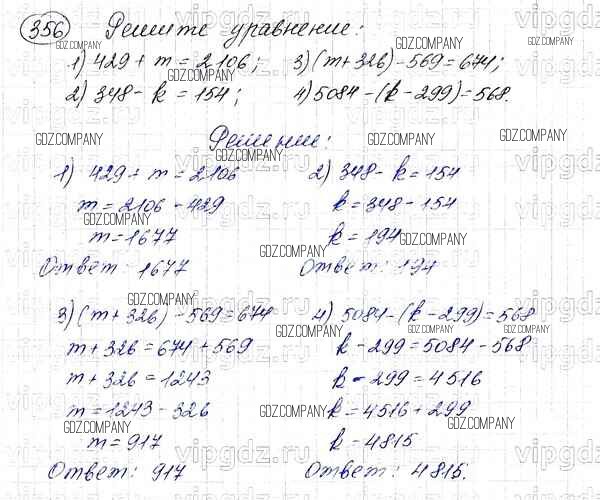 356 Решите уравнение:
1) 429 + m = 2106; 3) (m + 326) - 569 = 674;
2) 348 - k = 154; 4) 5084 - (k - 299) = 568.
Решение:
1) 429 + m = 2106
m = 2106 - 429
m = 1677
Ответ: 1677
2) 348 - k = 154
k = 348 - 154
k = 194
Ответ: 194
3) (m + 326) - 569 = 674
m + 326 = 674 + 569
m + 326 = 1243
m = 1243 - 326
m = 917
Ответ: 917
4) 5084 - (k - 299) = 568
k - 299 = 5084 - 568
k - 299 = 4516
k = 4516 + 299
k = 4815
Ответ: 4815.
GDZ.COMPANY
vipgdz.ru